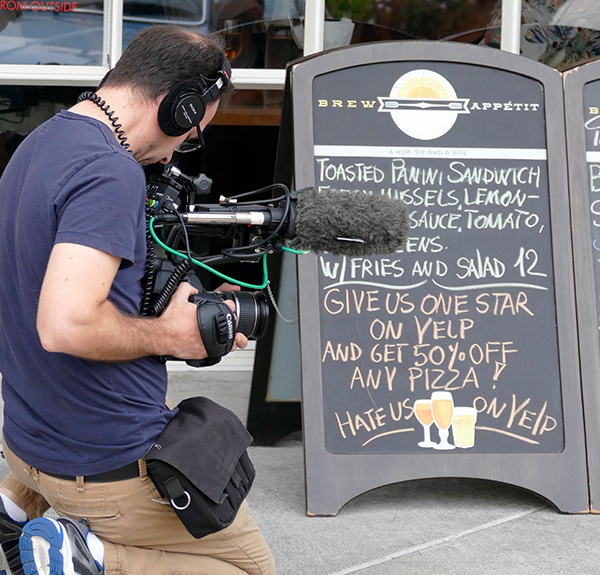 ROM OUTSIDE
BREW APPÉTIT
A HOP, SIP AND A BITE
TOASTED PANINI SANDWICH
FRESH MUSSELS, LEMON-
SAUCE, TOMATO,
ENS.
W/ FRIES AND SALAD 12
GIVE US ONE STAR
ON YELP
AND GET 50% OFF
ANY PIZZA!
HATE US ON YELP
Canon
SONY